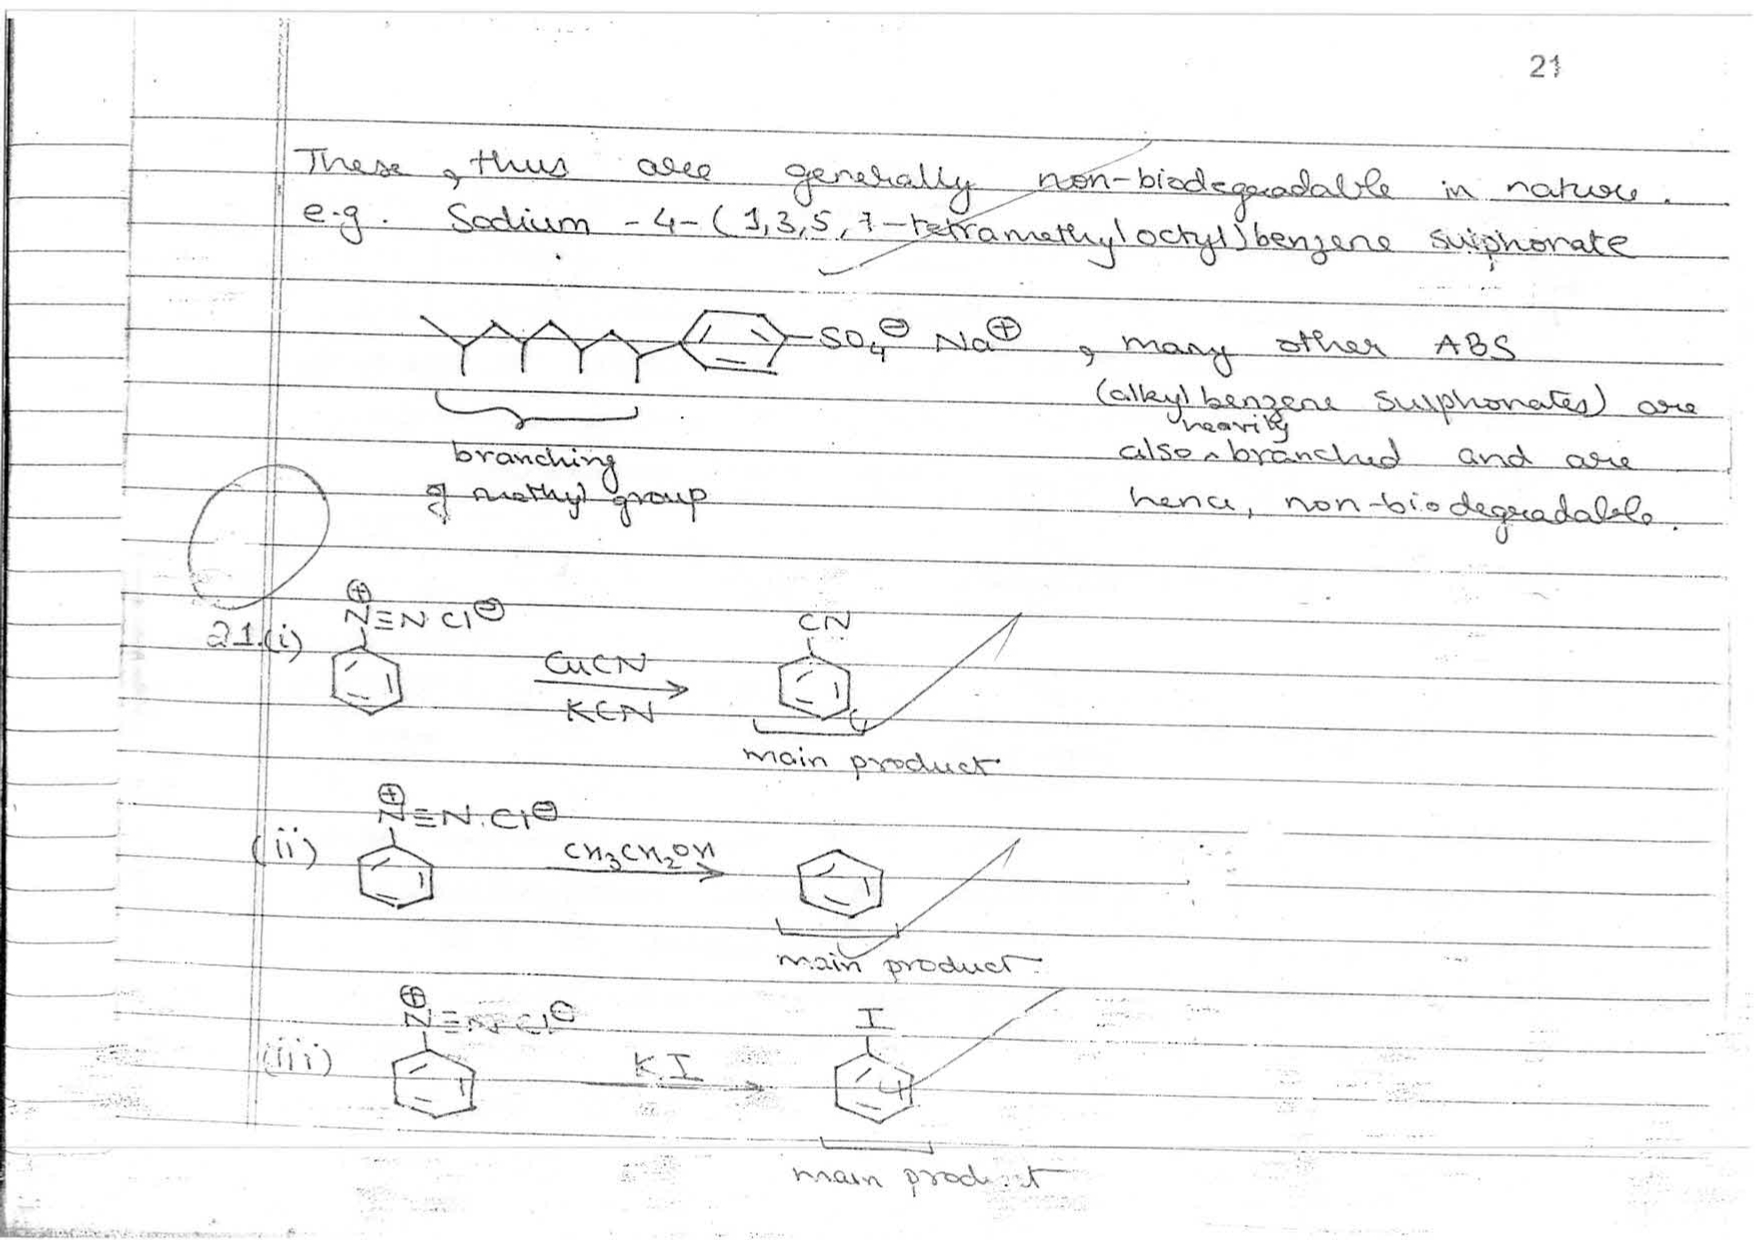 21
These, thus are generally non-biodegradable in nature.
e.g. Sodium -4-(1,3,5,7-tetramethyloctyl)benzene sulphonate
SO₄⊖ Na⊕ , many other ABS
(alkyl benzene sulphonates) are
heavily
also ^ branched and are
hence, non-biodegradable.
branching
of methyl group
21.(i) N⊕≡N Cl⊖ CuCN KCN CN
main product
(ii) N⊕≡N.Cl⊖ CH₃CH₂OH
main product
(iii) N⊕≡N Cl⊖ KI I
main product